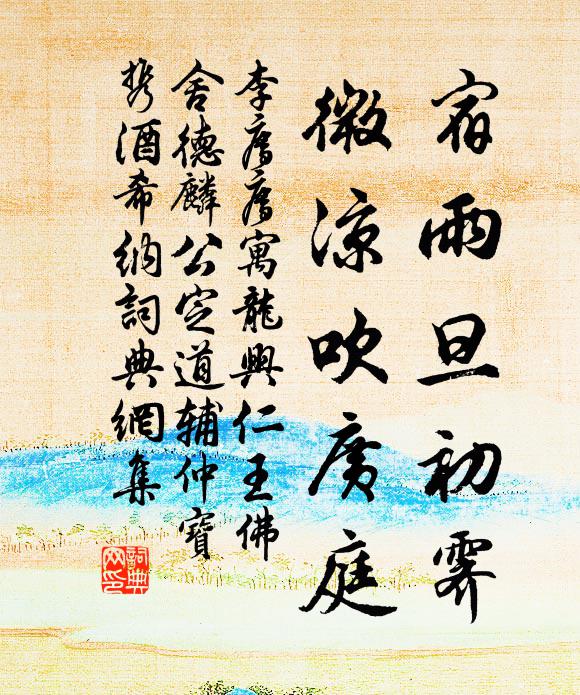 宿雨旦初霽
微涼吹廣庭
李膺膺寓龍興仁王佛
舍德麟公定道輔仲寶
携酒希納詞典網集
詞典网印